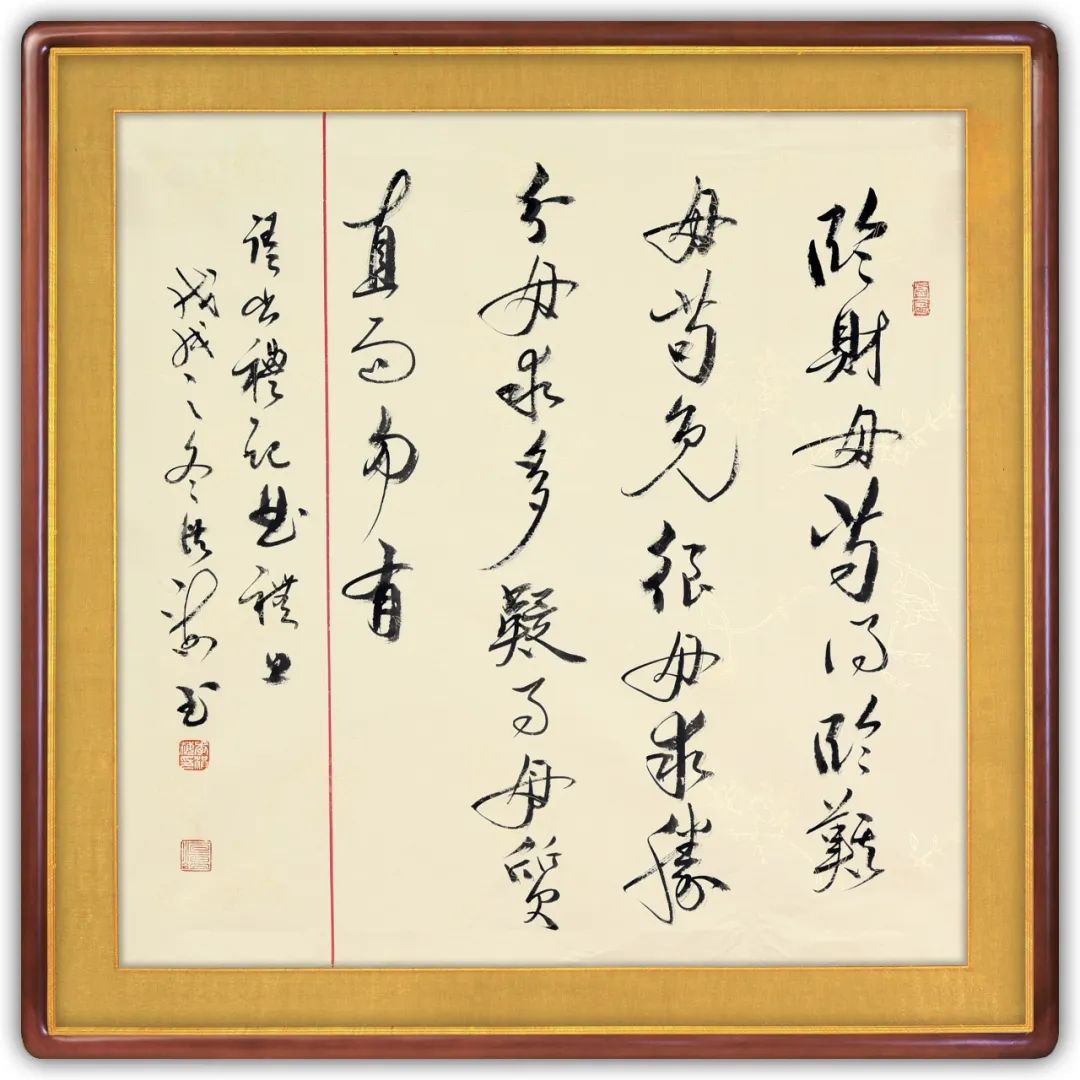 臨財毋苟得臨難
毋苟免很毋求勝
分毋求多疑事毋質
直而勿有
語出禮記曲禮上
戊戌之冬洪海書